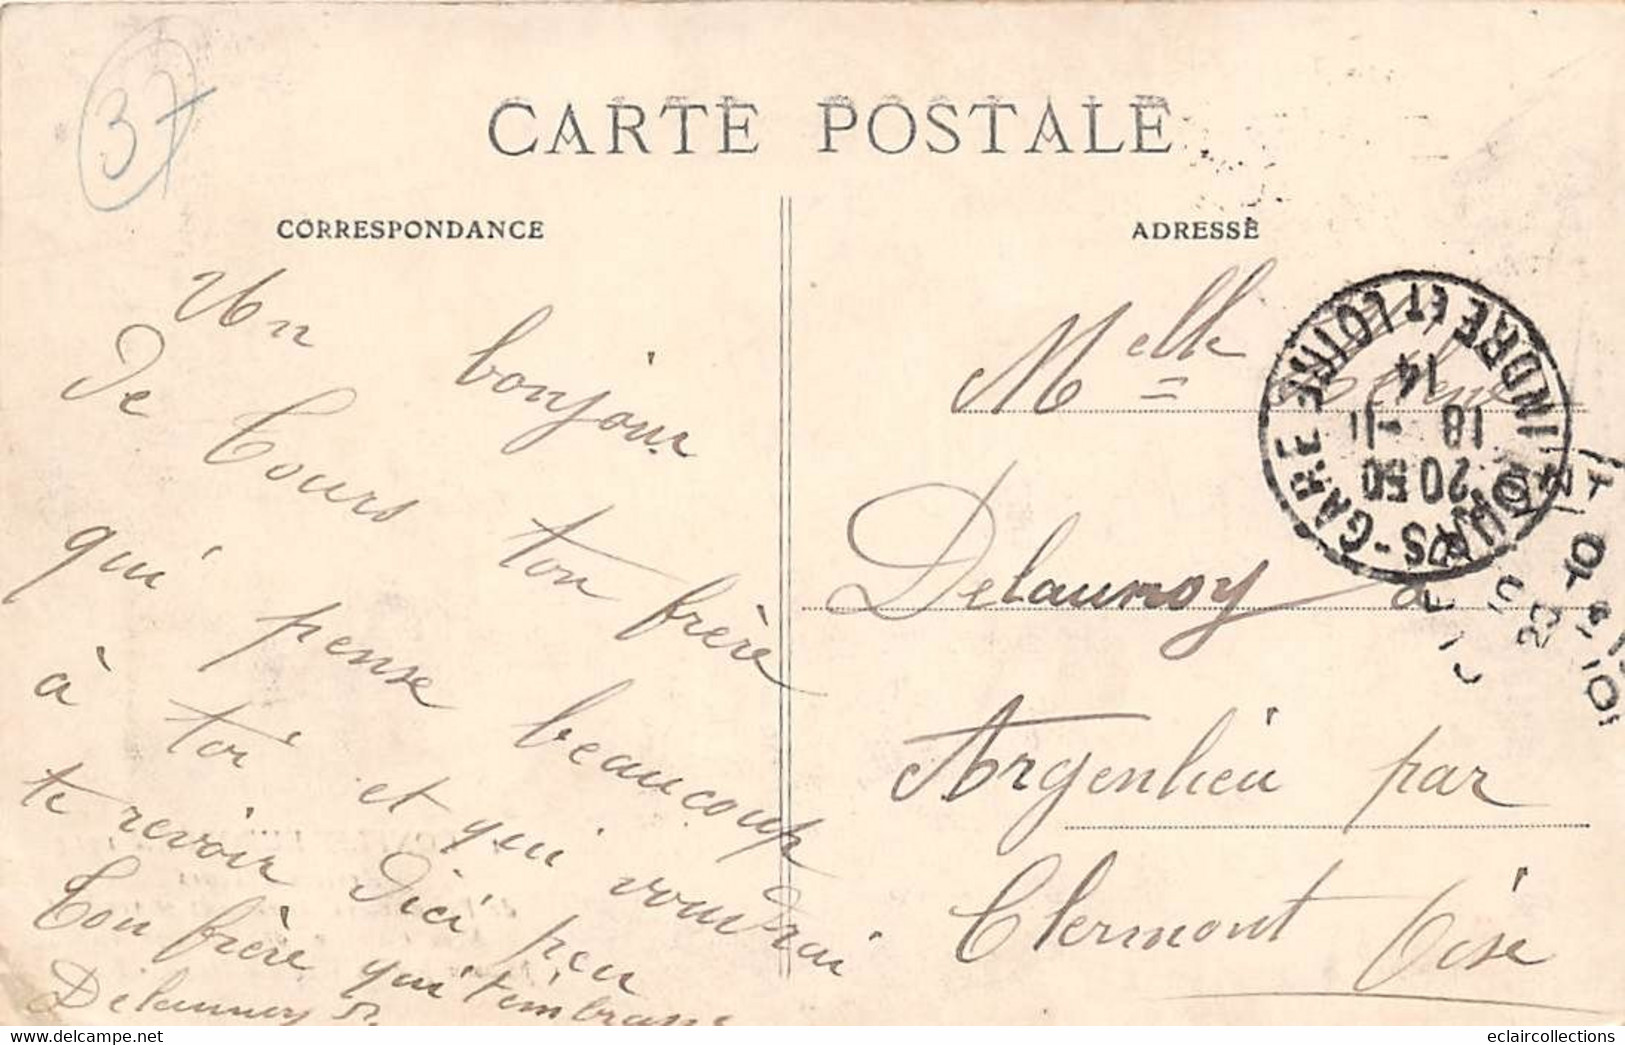 37
CARTE POSTALE
CORRESPONDANCE
ADRESSE
Un bonjour
De Tours ton frère
qui pense beaucoup
à toi et qui voudrai
te revoir D'ici peu
Ton frère qui t'embrasse
Delaunoy
Melle
Delaunoy à
Argenlieu par
Clermont Oise
TOURS-GARE
INDRE ET LOIRE
20 50
18 -11
14
delcampe.net
eclaircollections